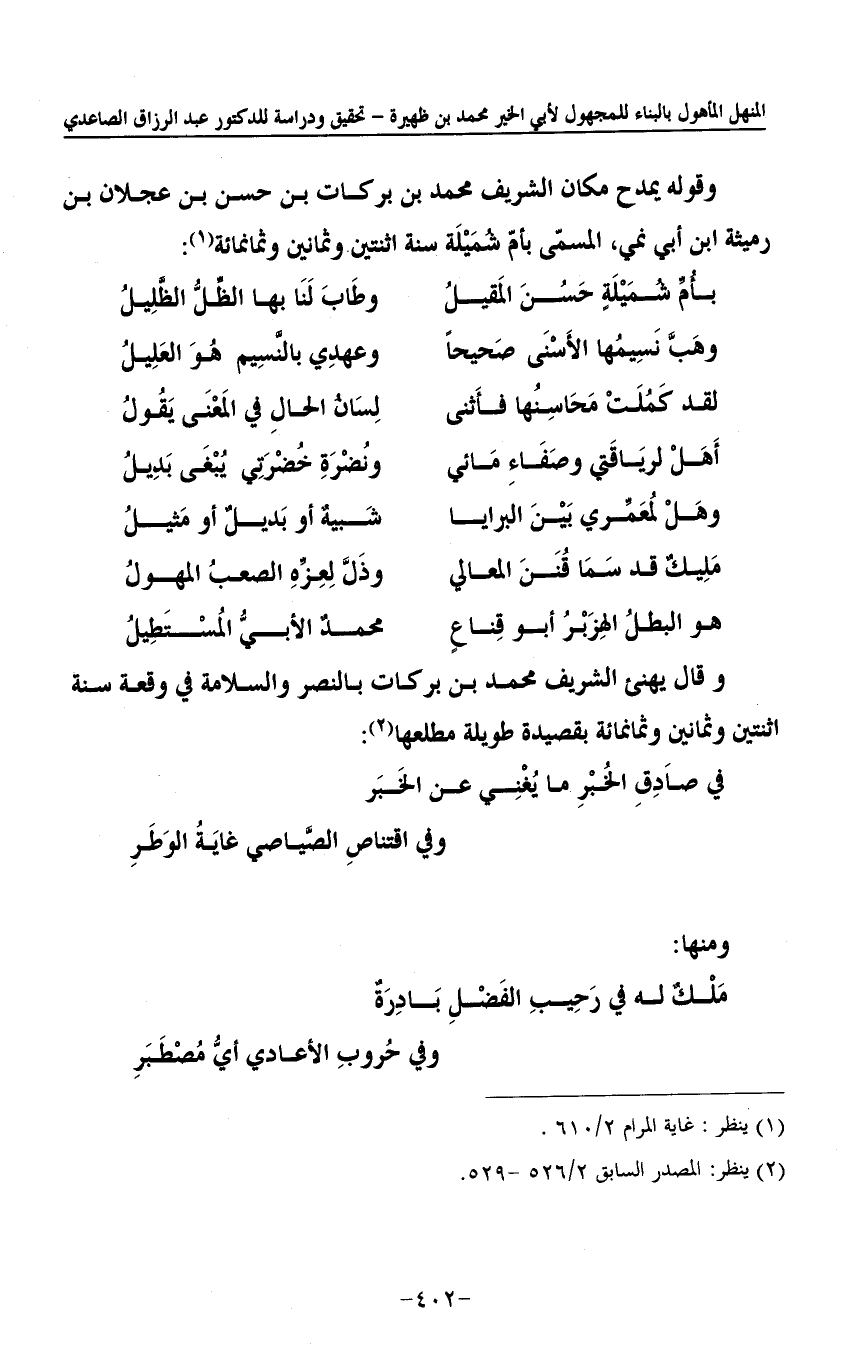 المنهل المأهول بالبناء للمجهول لأبي الخير محمد بن ظهيرة – تحقيق ودراسة للدكتور عبد الرزاق الصاعدي
وقوله يمدح مكان الشريف محمد بن بركات بن حسن بن عجلان بن
رميثة ابن أبي نمي، المسمّى بأمّ شُمَيْلَة سنة اثنتين وثمانين وثمانمائة(١):
بأُمِّ شُمَيْلَةٍ حَسُنَ المَقيلُ وطَابَ لَنَا بها الظِّلُّ الظَّلِيلُ
وهَبَّ نَسِيمُها الأَسْنَى صَحيحاً وعهدِي بالنَّسِيم هُوَ العَلِيلُ
لقد كَمُلَتْ مَحَاسِنُها فأَثنى لِسَانُ الحالِ في المَعْنَى يَقُولُ
أَهَلْ لريَاقَتي وصَفَاءِ مَائي ونُضْرَةِ خُضْرَتِي يُبْغَى بَدِيلُ
وهَلْ لمُعَمِّري بَيْنَ البرايا شَبيهٌ أو بَديلٌ أو مَثيلُ
مَلِيكٌ قد سَمَا قُنَنَ المعالي وذَلَّ لِعِزِّهِ الصعبُ المهولُ
هو البطلُ الهِزَبْرُ أبو قِناعٍ محمدٌ الأبيُّ المُسْتَطِيلُ
و قال يهنئ الشريف محمد بن بركات بالنصر والسلامة في وقعة سنة
اثنتين وثمانين وثمانمائة بقصيدة طويلة مطلعها(٢):
في صَادِقِ الخُبْرِ ما يُغْنِي عن الخَبَرِ
وفي اقتناصِ الصَّياصي غايَةُ الوَطَرِ
ومنها:
مَلْكٌ له في رَحِيبِ الفَضْلِ بَادِرَةٌ
وفي حُروبِ الأعادي أيُّ مُصْطَبَرِ
(١) ينظر : غاية المرام ٦١٠/٢ .
(٢) ينظر: المصدر السابق ٥٢٦/٢ –٥٢٩.
–٤٠٢–